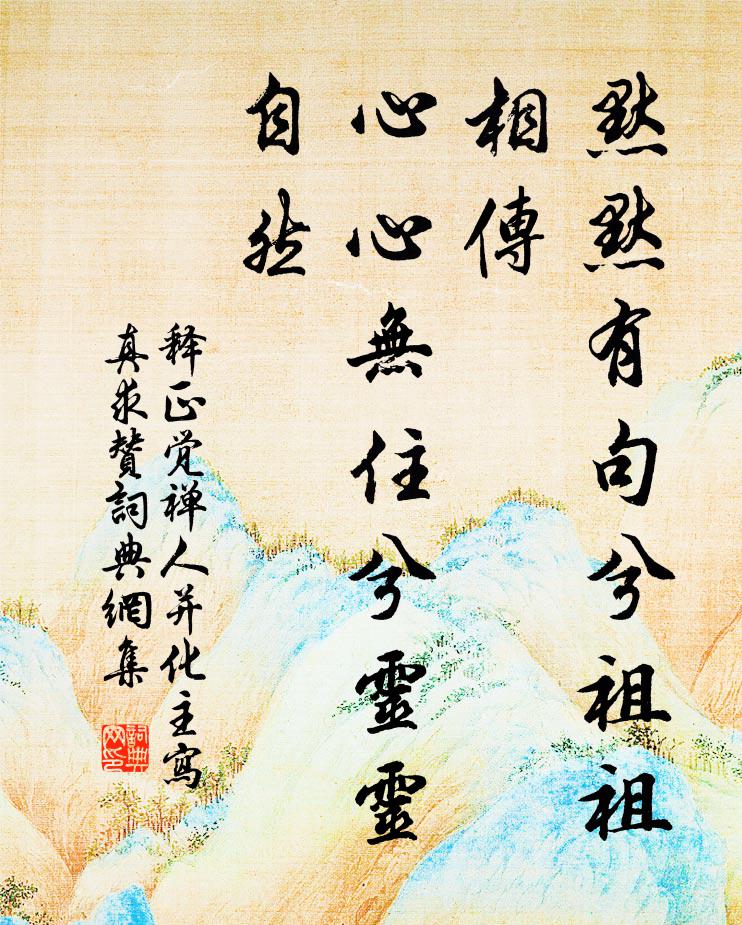 默默有句兮祖祖
相傳
心心無住兮靈靈
自然
释正觉禅人并化主寫
真求賛詞典網集
詞典
网印